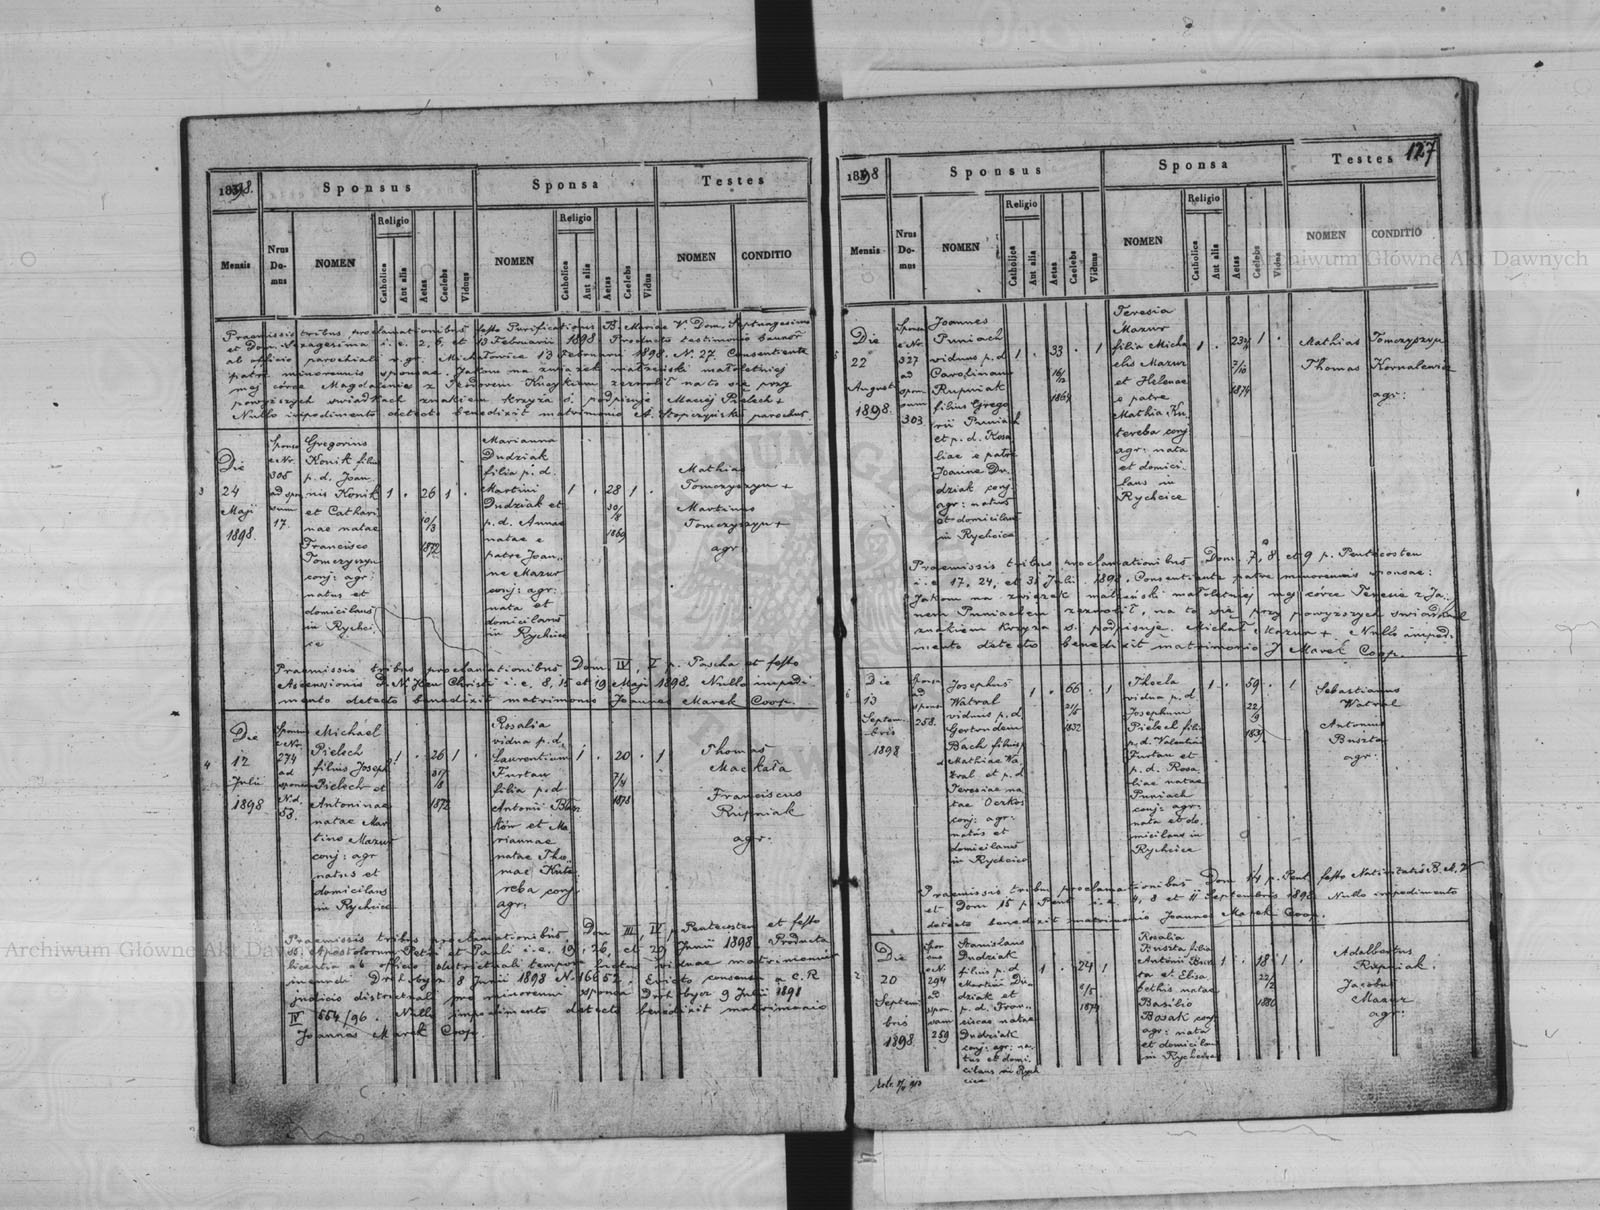 127
1898.
Sponsus
Sponsa
Testes
Mensis
Nrus Do-mus
NOMEN
Religio
Catholica
Aut alia
Aetas
Caelebs
Viduus
NOMEN
Religio
Catholica
Aut alia
Aetas
Caelebs
Vidua
NOMEN
CONDITIO
Praemissis tribus proclamationibus festo Purificationis B. Mariae V. Dom. Septuagesima
et Dom. Sexagesima i. e. 2, 6, et 13 Februarii 1898 Producto testimonio
ab officio parochiali r. gr. Michałowice 13 Februarii 1898. N. 27. Consentiente
patre minorennis sponsae. Jakom na związek małżeński małoletniej
mej córce Magdalenie z Teodorem zezwolił na to się przy
powyższych świadkach znakiem krzyża ś. podpisuję Maciej Pielech +
Nullo impedimento detecto benedixit matrimonio A. parochus
3
Die
24
Maji
1898.
Sponso
e Nr.
306
ad spon
sam
17.
Gregorius
Konik filius
p. d. Joan
nis Konik
et Cathari
nae natae
Francisco
Tomczyszyn
conj: agr:
natus et
domicilans
in Rychci
ce
1 . 26 1 .
10/3
1872
Marianna
Dudziak
filia p. d.
Martini
Dudziak et
p. d. Annae
natae e
patre Joan
ne Mazur
conj: agr:
nata et
domicilans
in Rychcice
1 . 28 1 .
30/8
1869
Mathias
Tomczyszyn +
Martinus
Tomczyszyn +
agr:
Praemissis tribus proclamationibus Dom. IV, V p. Pascha et festo
Ascensionis D. N. Jesu Christi i. e. 8, 15 et 19 Maji 1898. Nullo impedi
mento detecto benedixit matrimonio Joannes Marek Coop.
4
Die
12
Julii
1898
Sponso
e Nr.
274
ad
sponsam
N. d.
53.
Michael
Pielech
filius Joseph
Pielech et
Antoninae
natae Mar
tino Mazur
conj: agr
natus et
domicilans
in Rychcice
1 . 26 1 .
1872
Rosalia
vidua p. d.
Laurentium
Furtan
filia p. d
Antonii
et Ma
riannae
natae Tho
mae Kute
reba conj
agr.
1 . 20 . 1
7/4
1878
Thomas
Mackała
Franciscus
Rupniak
agr.
Praemissis tribus proclamationibus Dom III, IV p. Pentecosten et festo
SS. Apostolorum Petri et Pauli i. e. 19, 26, et 29 Junii 1898 Producta
licentia ab officio districtuali tempore luctus viduae matrimonium
ineundi Drohobycz 8 Junii 1898 N. 16652. Evicto consensu a C. R
judicio districtuali pro minorenni sponsa Drohobycz 9 Julii 1898
IV 554/96. Nullo impedimento detecto benedixit matrimonio
Joannes Marek Coop.
1898
Sponsus
Sponsa
Testes
Mensis
Nrus Do-mus
NOMEN
Religio
Catholica
Aut alia
Aetas
Caelebs
Viduus
NOMEN
Religio
Catholica
Aut alia
Aetas
Caelebs
Vidua
NOMEN
CONDITIO
5
Die
22
August
1898.
Sponso
e Nr.
327
ad
spon
sam
303
Joannes
Puniach
viduus p. d
Carolinam
Rupniak
filius Grego
rii Puniach
et p. d. Rosa
liae e patre
Joanne Du
dziak conj
agr: natus
et domicilans
in Rychcice
1 . 33 . 1
16/12
1864
Teresia
Mazur
filia Micha
elis Mazur
et Helenae
e patre
Mathia Ku
tereba conj
agr: nata
et domici
lans in
Rychcice
1 . 1 .
7/10
1874
Mathias Tomczyszyn
Thomas
agr:
Praemissis tribus proclamationibus Dom. 7, 8 et 9 p. Pentecosten
i. e 17, 24, et 31 Julii 1898. Consentiente patre minorennis sponsae:
Jakom na związek małżeński małoletniej mej córce Teresie z Ja
nem Puniachem zezwolił, na to się przy powyższych świadkach
znakiem krzyża ś. podpisuję. Michał Mazur +. Nullo impedi
mento detecto benedixit matrimonio J Marek Coop.
6
Die
13
Septem
bris
1898
Sponso
ad
spons.
258.
Josephus
Watral
viduus p. d
Gertrudem
Bach filius
Mathiae Wa
tral et p. d
Teresiae na
tae
conj: agr:
natus et
domicilans
in Rychcice
1 . 66 . 1
1832
Thecla
vidua p. d
Josephum
Pielech filia
p. d. Valentini
Furtan et
p. d. Rosa
liae natae
Puniach
conj: agr:
nata et do
micilans in
Rychcice
1 . 59 . 1
22/9
1839
Sebastianus
Watral
Antonius
Buszta
agr:
Praemissis tribus proclamationibus Dom 14 p. Pent festo Nativitatis B. M. V
et Dom 15 p Pent i. e. 4, 8 et 11 Septembris 1898 Nullo impedimento
detecto benedixit matrimonio Joannes Marek Coop.
Die
20
Septem
bris
1898
Spon
so
e N.
294
ad
spon
sam
259
Stanislaus
Dudziak
filius p. d
Martini Du
dziak et
p. d. Fran
ciscae natae
Dudziak
conj: agr: na
tus et domi
cilans in Rych
cice
1 . 24 1
1874
Rosalia
Buszta filia
Antonii Busz
ta et Elisa
bethis natae
Basilio
Bosak conj
agr: nata
et domicilans
in Rychcice
1 . 18 1 .
22/2
1880
Adalbertus
Rupniak
Jacobus
Mazur
agr:
Archiwum Główne Akt Dawnych
Archiwum Główne Akt Dawnych